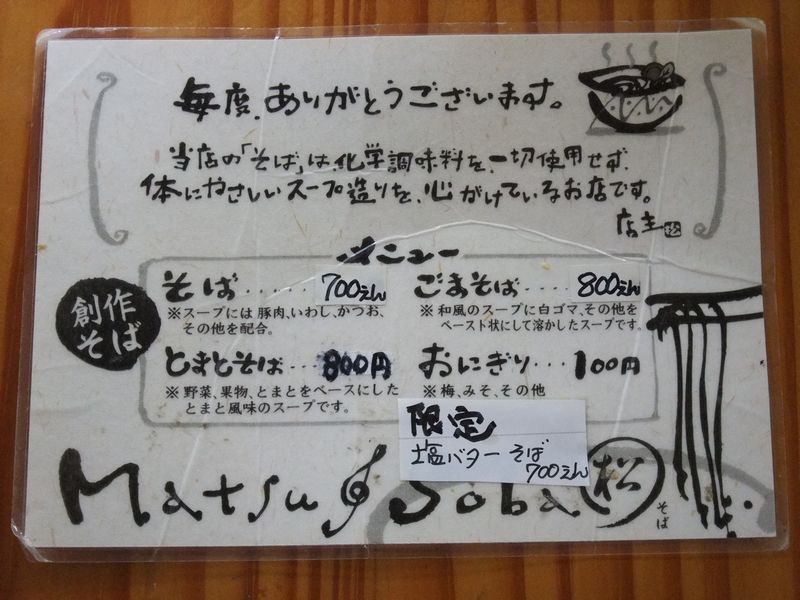 毎度、ありがとうございます。
当店の「そば」は、化学調味料を、一切使用せず、
体にやさしいスープ造りを、心がけているお店です。
店主 松
メニュー
創作
そば
そば・・・・・700えん
※スープには豚肉、いわし、かつお、
その他を配合。
ごまそば・・・・800えん
※和風のスープに白ゴマ、その他を
ペースト状にして溶かしたスープです。
とまとそば・・・800円
※野菜、果物、とまとをベースにした
とまと風味のスープです。
おにぎり・・・100円
※梅、みそ、その他
限定
塩バターそば
700えん
Matsu Soba 松
そば